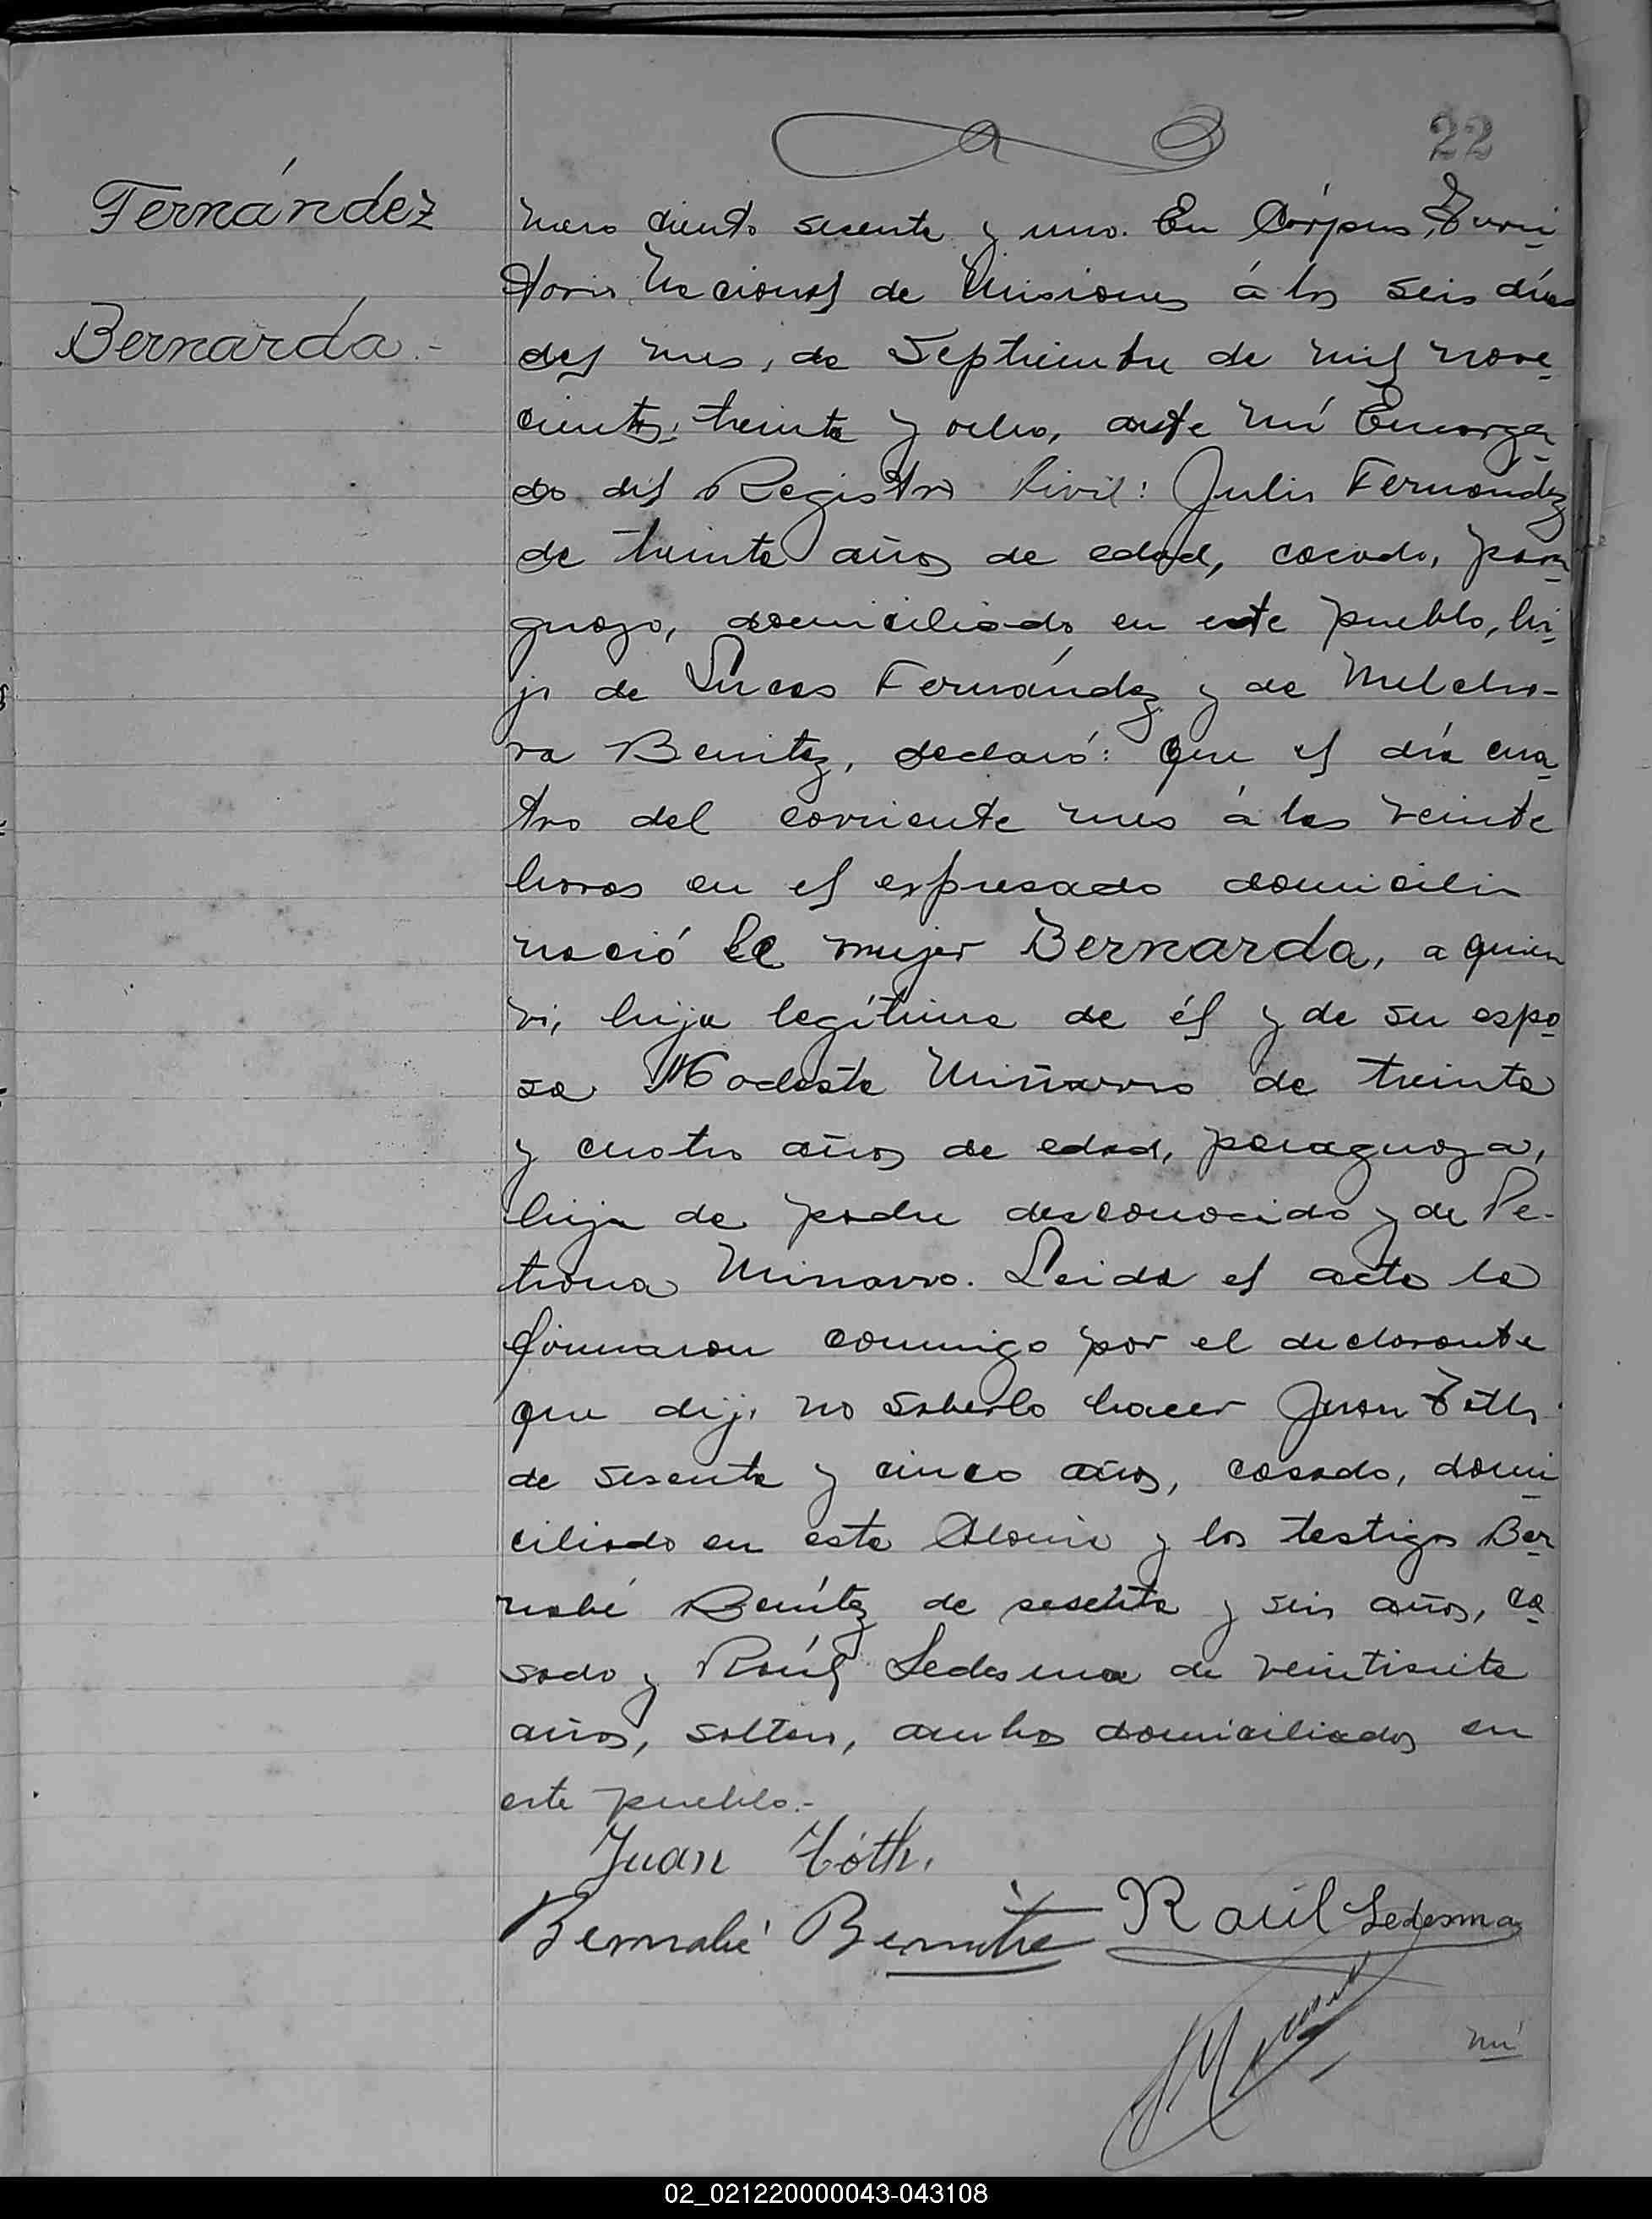 22
Fernández
Bernarda.-
mero ciento sesenta y uno. En Córpus, Terri-
torio Nacional de Misiones á los seis días
del mes, de Septiembre de mil nove-
cientos treinta y ocho, ante mí Encarga-
do del Registro Civil: Julio Fernández
de treinta años de edad, casado, para-
guayo, domiciliado en este pueblo, hi-
jo de Lucas Fernández y de Melcho-
ra Benitez, declaró: Que el día cua-
tro del corriente mes á las veinte
horas en el expresado domicilio
nació la mujer Bernarda, a quien
vi, hija legítima de él y de su espo-
sa Modesta Miñarro de treinta
y cuatro años de edad, paraguaya,
hija de padre desconocido y de Pe-
trona Minarro. Leida el acta la
firmaron conmigo por el declarante
que dijo no saberlo hacer Juan Tóth
de sesenta y cinco años, casado, domi-
ciliado en esta Colonia y los testigos Ber-
nabé Benítez de sesenta y seis años, ca-
sado y Raúl Ledesma de veintisiete
años, soltero, ambos domiciliados en
este pueblo.-
Juan Tóth.
Bernabé Benitez Raúl Ledesma
nú
02_021220000043-043108